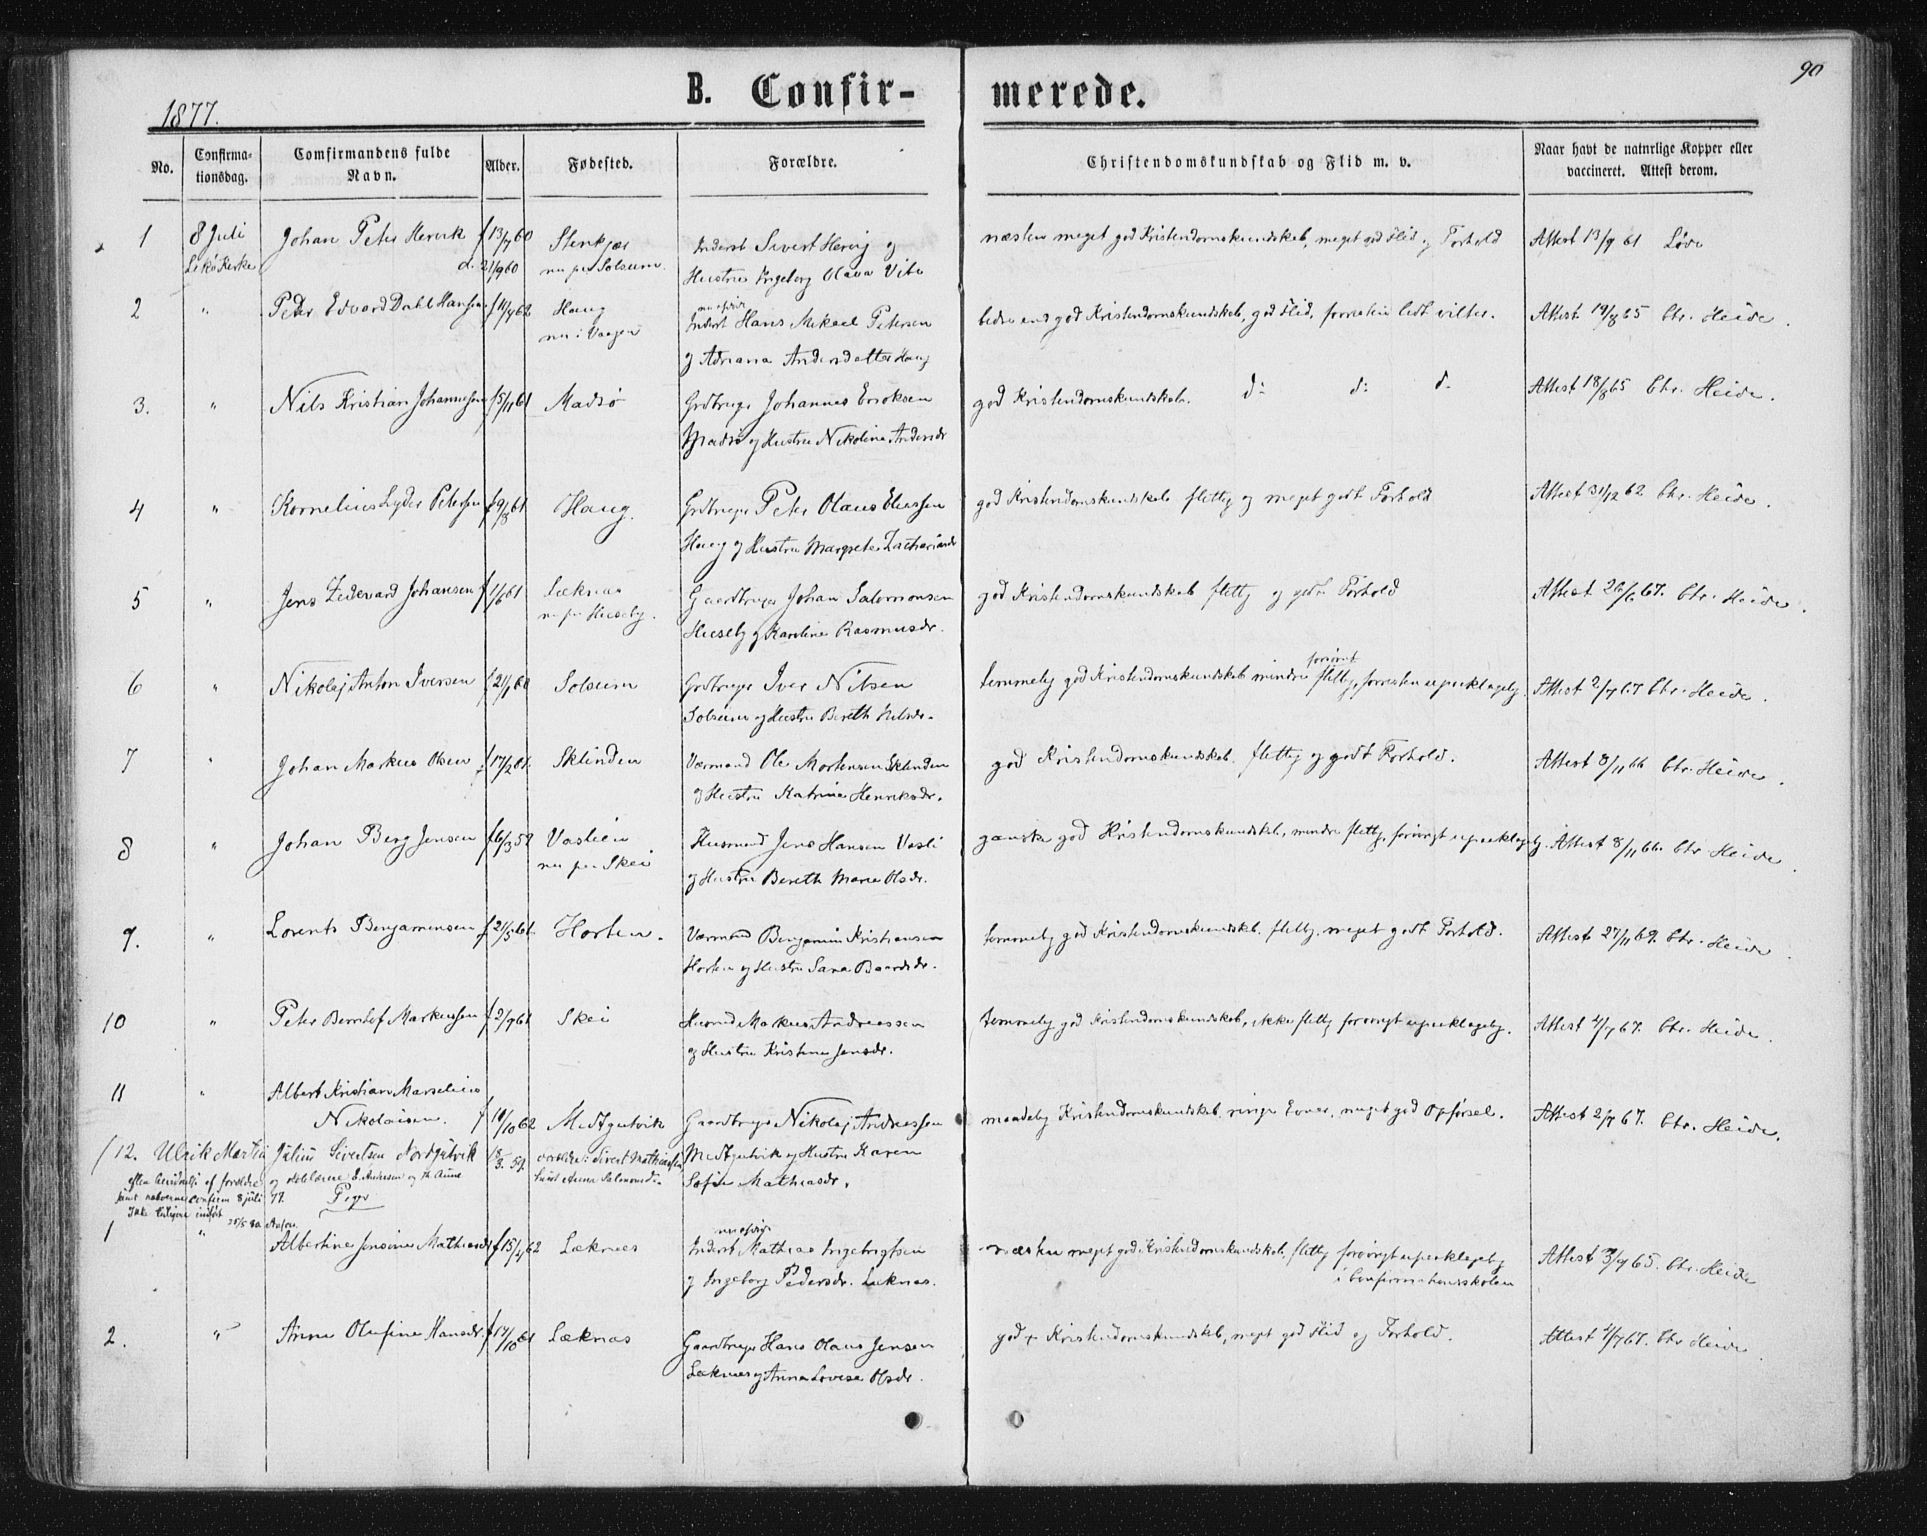 90
B. Confir- merede.
1877.
No. Confirma- tionsdag. Comfirmandens fulde Navn. Alder. Fødested. Forældre. Christendomskundskab og Flid m. v. Naar havt de naturlige Kopper eller vaccineret. Attest derom.
1 8 Juli Johan Peter Hervik f 13/7 60 Stenkjær Inderst Sivert Hervig og næsten meget god Kristendomskundskab, meget god Flid og Forhold Attest 13/9 61 Løve
Lekø Kirke d. 21/9 60 nu paa Solsem Hustru Ingeborg Olava
2 " Peter Edvard Dahl Hansen f 11/7 62 Haug Inderst Hans Mikael Petersen bedre end god Kristendomskundskab, god Flid, forresten lidt vilter. Attest 19/8 65 Chr. Heide.
nu i Vaagen og Adriana Andersdatter Haug
3. " Nils Kristian Johannesen f 5/11 61 Madsø Grdbruger Johannes Eriksen god Kristendomskundskab. do do do Attest 18/8 65 Chr. Heide.
Madsø og Hustru Nikolina Andersdr
4 " Kornelius Lyder Petersen f 9/8 61 Haug. Grdbruger Peter Olaus Eliassen god Kristendomskundskab flittig og meget godt Forhold Attest 31/12 62 Chr. Heide.
Haug og Hustru Margrete Zachariasdr
5 " Jens Zedevard Johansen f 1/6 61 Læknæs Gaardbruger Johan Salomonsen god Kristendomskundskab flittig og godt Forhold Attest 26/6 67. Chr. Heide.
nu paa Huseby. Huseby og Karoline Rasmusdr.
6 " Nikolaj Anton Iversen f 21/1 60 Solsem Grdbruger Iver Nilsen temmelig god Kristendomskundskab mindre flittig, forresten upaaklagelig. Attest 2/7 67 Chr. Heide.
Solsem og Hustru Bereth Nilsdr.
7 " Johan Markus Olsen f 17/2 61. Sklinden Værmand Ole Mortensen Sklinden god Kristendomskundskab. flittig og godt Forhold. Attest 8/11 66 Chr. Heide.
og Hustru Katrine Henriksdr.
8 " Johan Berg Jensen f 6/3 59 Vaslien Husmand Jens Hansen Vasli ganske god Kristendomskundskab, mindre flittig, forøvrigt upaaklagelig. Attest 8/11 66. Chr Heide.
nu paa Skei og Hustru Bereth Marie Olsdr.
9. " Lorents Benjaminsen f 21/5 61 Horten. Værmand Benjamin Kristiansen temmelig god Kristendomskundskb. flittig, meget godt Forhold. Attest 27/11 69. Chr. Heide.
Horten og Hustru Sara Baardsdr.
10 " Peter Berntof Markussen f 2/9 61 Skei Husmd Markus Andreassen temmelig god Kristendomskundskab, ikke flittig forøvrigt upaaklagelig. Attest 4/7 67. Chr. Heide.
og Hustru Kristine Jensdr.
11 " Albert Kristian Marselius
Nikolaisen. f 19/10 62 Medtgutvik Gaardbruger Nikolaj Andreassen maadelig Kristendomskundskab, ringe Evner, meget god Opførsel. Attest 2/7 67. Chr. Heide.
12. Ulrik Martin Julius Sivertsen Nordgutvik 18/3. 59. forældre: Sivert Mathiassen Medtgutvik og Hustru Karen
Anna Salomonsd. Sofie Mathiasdr.
samt confirm 8 juli 77.
Ikke tidligere indført 25/5 80
Piger
1 " Albertine Jensine Mathiasdr f 15/4 62 Læknes Inderst Mathias Ingebrigtsen næsten meget god Kristendomskundskab, flittig forøvrigt upaaklagelig Attest 3/9 65. Chr. Heide
i Confirmationsskolen
og Ingeborg Pedersdr. Læknæs.
2. " Anne Olufine Hansdr. f 14/10 61 Læknæs Gaardbruger Hans Olaus Jensen god Kristendomskundskab, meget god Flid og Forhold. Attest 4/7 67. Chr Heide
Læknæs og Anna Lovisa Olsdr.